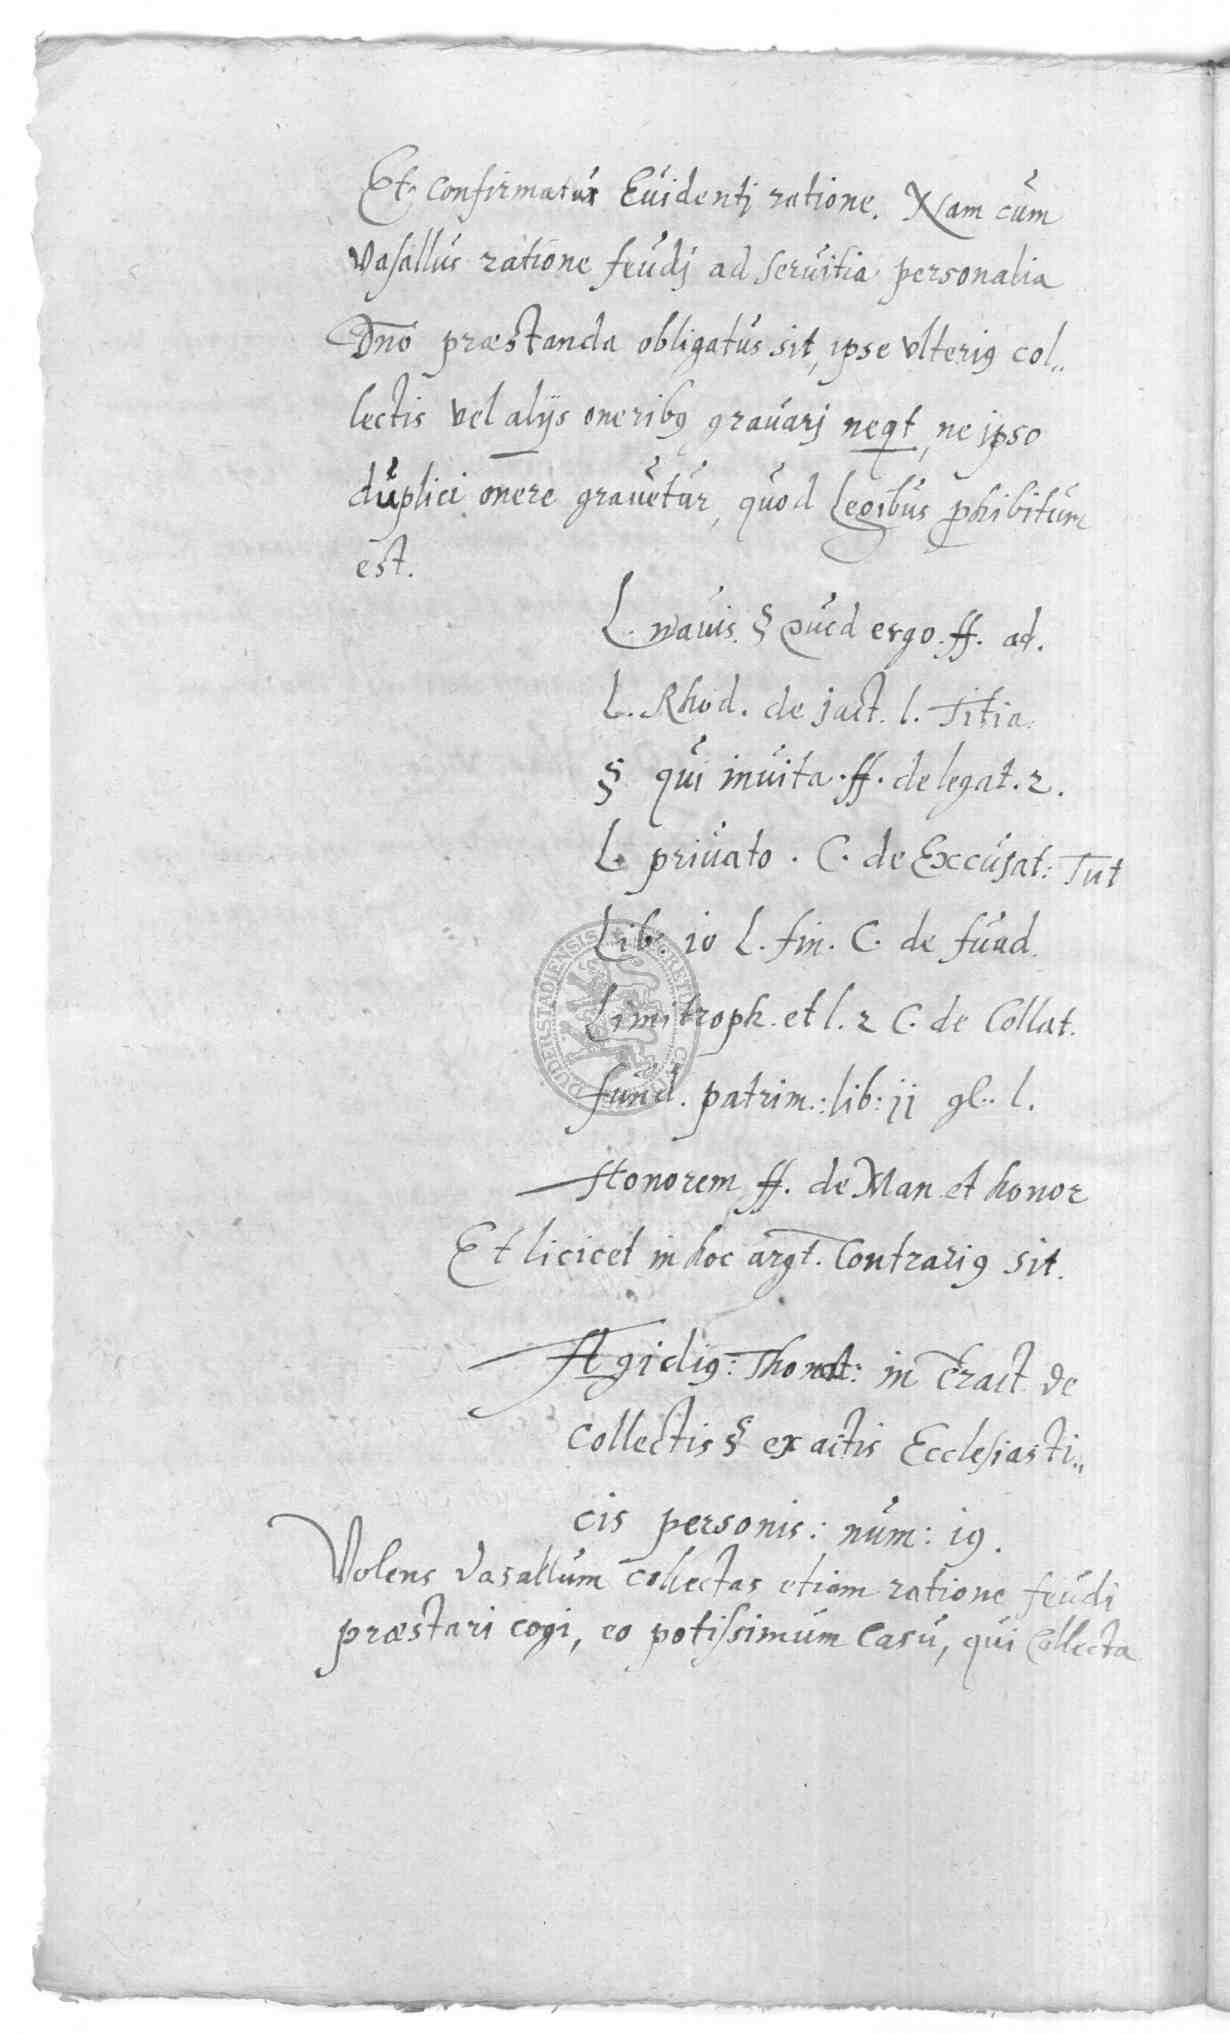 Et confirmatur Euidentj ratione. Nam cum
vasallus ratione feudj ad seruitia personalia
Dno præstanda obligatus sit, ipse vlteriꝰ col„
lectis vel alijs oneribꝰ grauarj neqt, ne ipso
duplici onere grauetur, quod Legibus ꝓhibitum
est.
L. nauis. § Quod ergo. ff. ad.
L. Rhod. de jact. l. Titia.
§ qui inuita. ff. de legat. 2.
L. priuato. C. de Excusat: Tut
Lib. 10 L. fin. C. de fund.
Limitroph. et l. 2 C. de Collat.
fund. patrim.: lib: jj gl. l.
Honorem ff. de Mun et honor
Et licicet in hoc argt. Contrariꝰ sit.
Ægidiꝰ: Thomat: in Tract de
collectis § ex actis Ecclesiasti„
cis personis: num: 19.
Volens Vasallum collectas etiam ratione feudi
præstari cogi, eo potissimum Casu, qui Collecta
DUDERSTADIENSIS